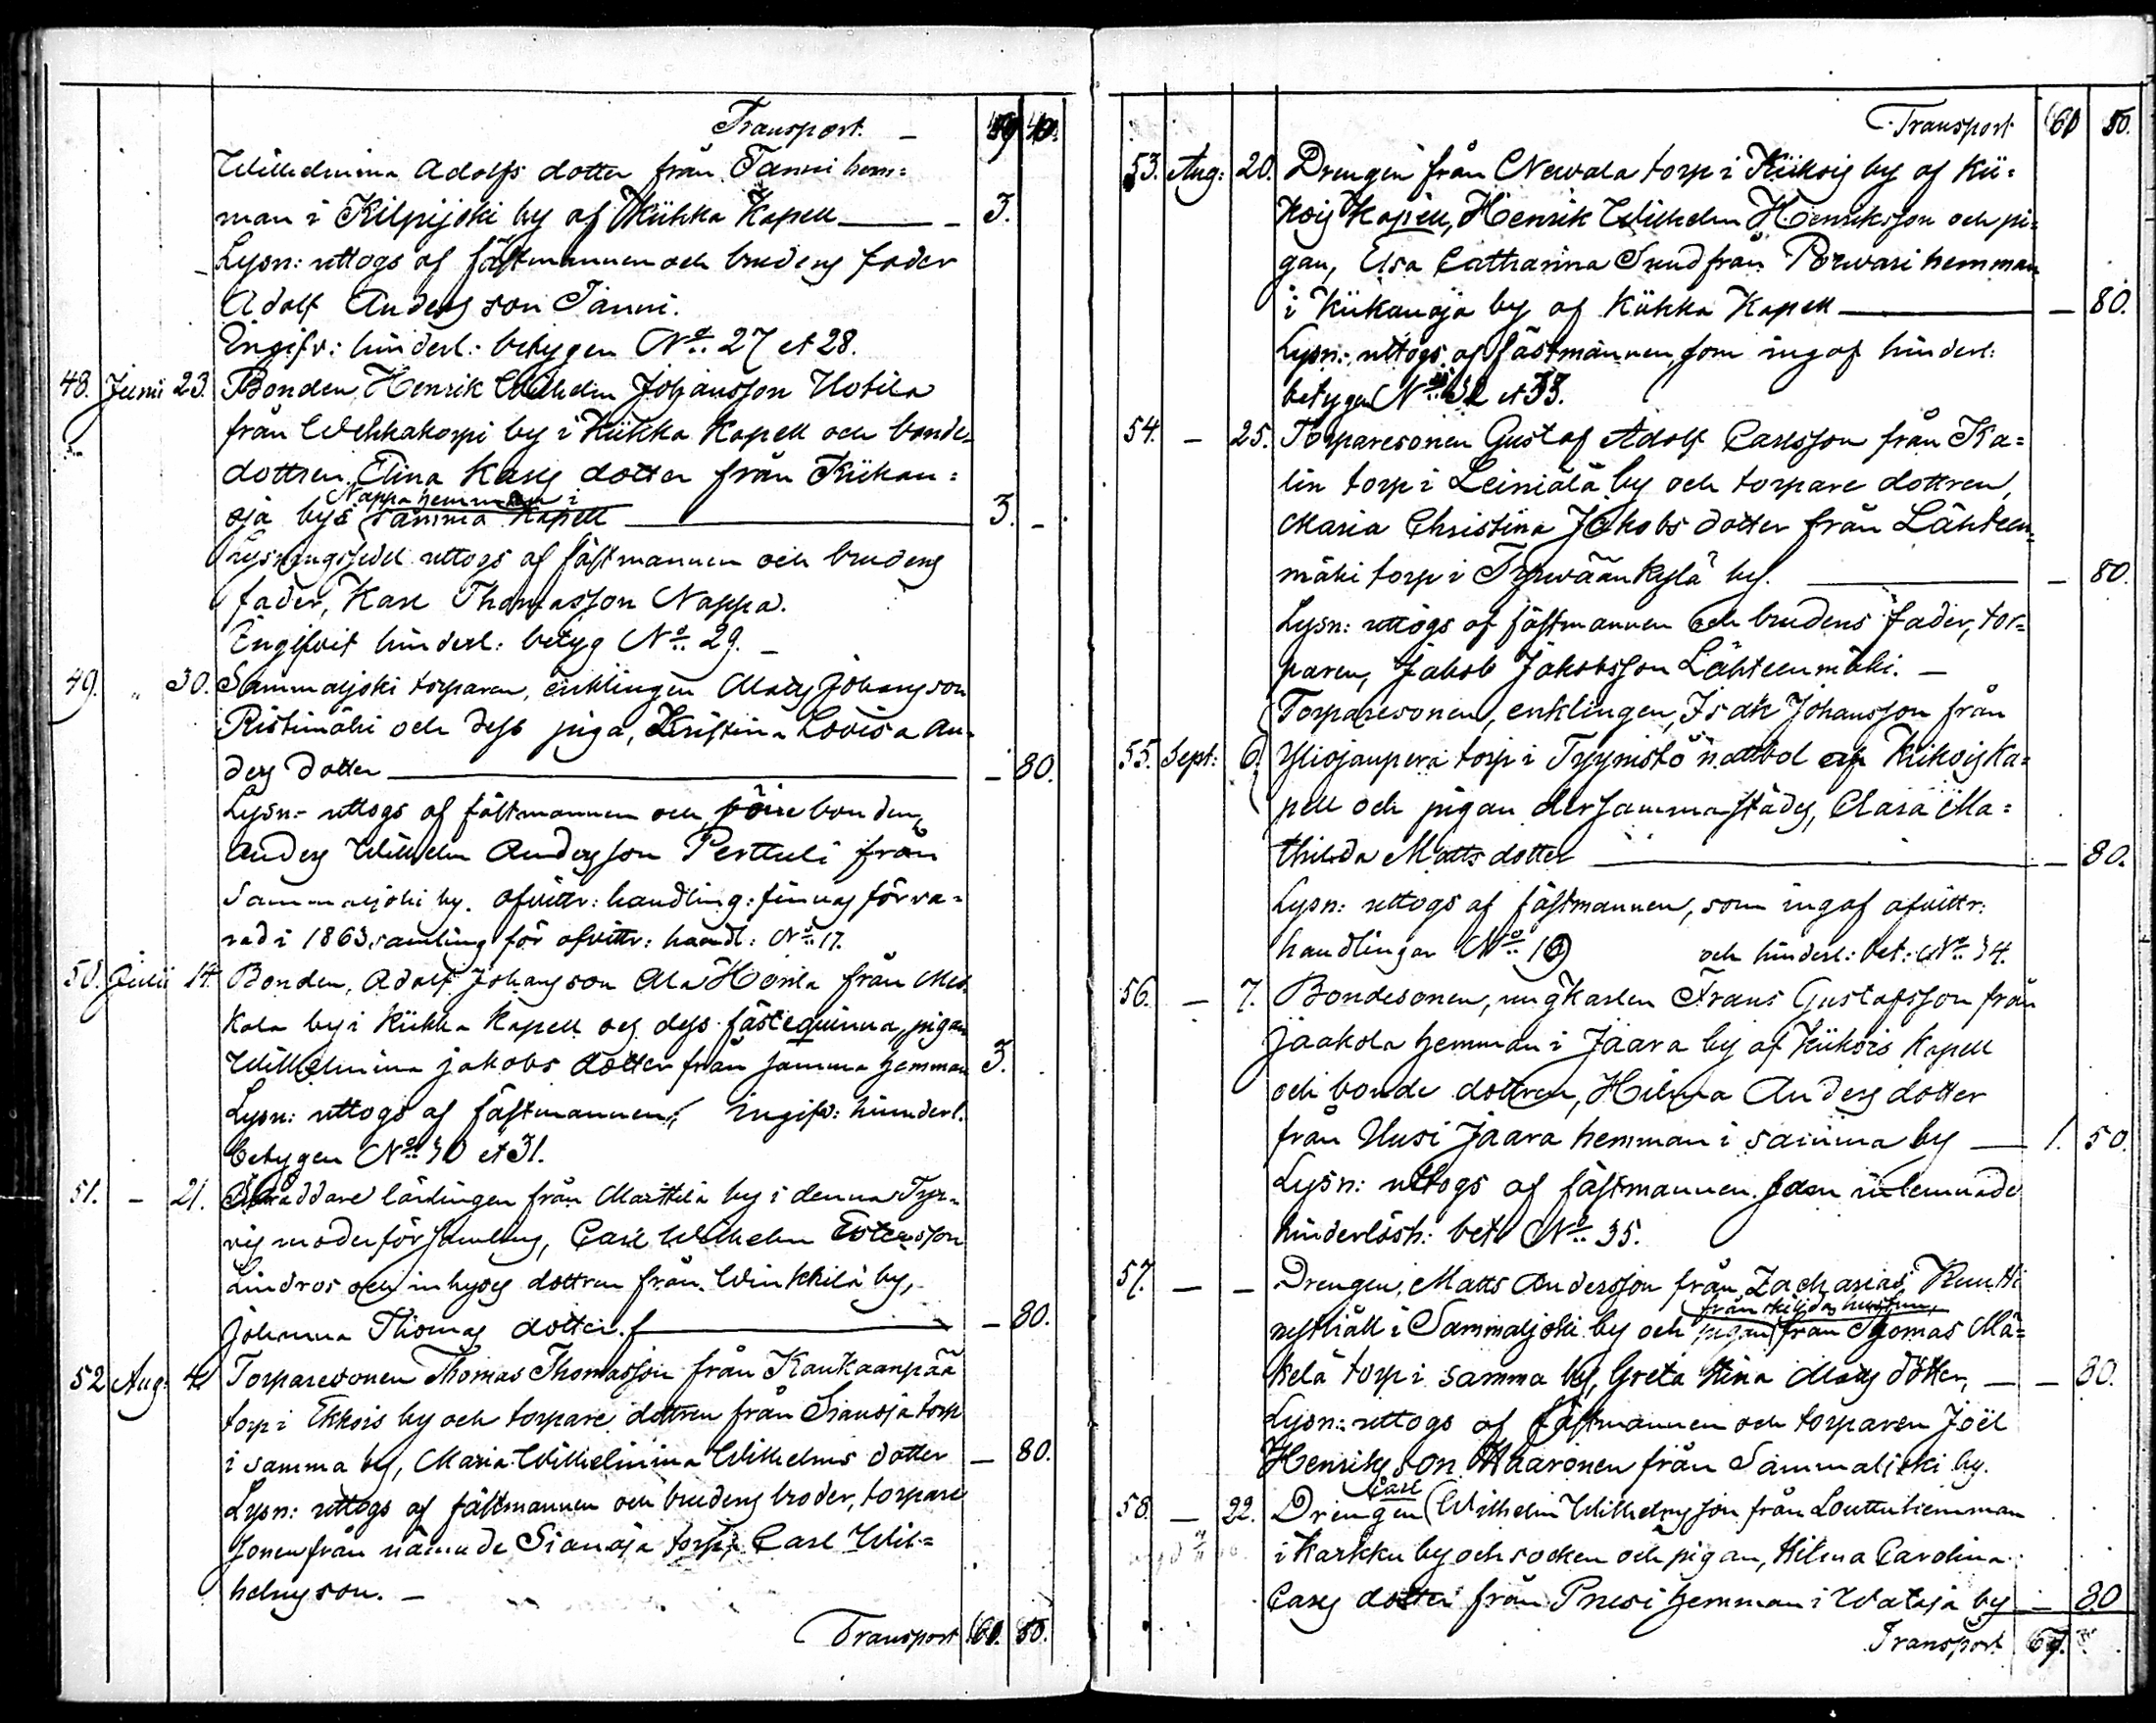 Transport. — 59 40.
Willhelmina Adolfs dotter från Tanni hem=
man i Kilpijoki by af Kiikka Kapell — 3.
Lysn: uttogs af fästmannen och brudens fader
Adolf Anders son Tanni.
Ingifv: hinderl: betygen No 27 et 28.
48. Juni 23. Bonden Henrik Wilhelm Johansson Uotila
från Wehkakorpi by i Kiikka Kapell och bonde=
dottren Tina Karls dotter från Kiikan=
Nappa hemman i
oja by i samma Kapell — 3. —
Lysningssedel uttogs af fästmannen och brudens
fader, Karl Thomasson Nappa.
Ingifvit hinderl: betyg No 29. —
49. " 30. Sammaljoki torparen, enklingen Mats Johansson
Ristimäki och dess piga, Kristina Lovisa An=
ders dotter — — 80.
Lysn: uttogs af fästmannen och bonden,
Anders Wilhelm Andersson Perttuli från
Sammaljoki by. Afvittr: handling: finnas förva=
rad i 1863 samling för afvittr: handl: No 17.
50. Julii 14. Bonden, Adolf Johansson Ala Honla från Mes=
kala by i Kiikka Kapell och dess fästeqvinna, pigan
Willhelmina Jakobs dotter från samma hemman 3.
Lysn: uttogs af fästmannen; ingifv: hinderl.
betygen No 30 et 31.
51. — 21. Skräddare lärlingen från Marttila by i denna Tyr=
vis moderförsamling, Carl Wilhelm Estersson
Lindros och inhyses dottren från Winkkilä by,
Johanna Thomas dotter. — — 80.
52 Aug: 4 Torparesonen Thomas Thomasson från Kaukaanpää
torp i Ekkois by och torpare dottren från Sianoja torp
i samma by, Maria Willhelmina Wilhelms dotter — 80.
Lysn: uttogs af fästmannen och brudens broder, torpare
sonen från nämnde Sianoja torp, Carl Wil=
helmsson. —
Transport 60. 80.
Transport 60 80.
53. Aug: 20. Drengen från Newala torp i Kiikois by af Kii=
kois Kapell, Henrik Wilhelm Henriksson och pi=
gan, Elsa Catharina Sund från Porvari hemman
i Kiikanoja by af Kiikka Kapell — — 80.
Lysn: uttogs af fästmannen, som ingaf hinderl:
betygen No 32 et 33.
54. — 25. Torparesonen Gustaf Adolf Carlsson från Ka=
lin torp i Leiniälä by och torpare dottren,
Maria Christina Jakobs dotter från Lähteen=
mäki torp i Tyrwäänkylä by. — — 80.
Lysn: uttogs af fästmannen och brudens fader, tor=
paren, Jakob Jakobsson Lähteenmäki. —
Torparesonen, enklingen, Isak Johansson från
55. Sept: 6. Yliojanperä torp i Tyynistö nattbol af Kiikois Ka=
pell och pigan dersammastädes, Clara Ma=
thilda Matts dotter — — 80.
Lysn: uttogs af fästmannen, som ingaf afvittr:
handlingar No 19 och hinderl: bet: No 34.
56. — 7. Bondesonen, ungkarlen Frans Gustafsson från
Jaakola hemman i Jaara by af Kiikois Kapell
och bonde dottren, Hilma Anders dotter
från Uusi Jaara hemman i samma by — 1. 50.
Lysn: uttogs af fästmannen som inlemnade
hinderlösh: bet: No 35.
57. — — Drengen, Matts Andersson från Zacharias Knutti
från skiljda hustrun,
nybyäll i Sammaljoki by och pigan från Thomas Mä=
kelä torp i samma by, Greta Stina Mats dotter, — — 80.
Lysn: uttogs af fästmannen och torparen Joël
Henriks son Haaronen från Sammaljoki by.
Carl
58. — 22. Drengen Wilhelm Wilhelmsson från Louttu hemman
i Karkku by och socken och pigan, Hilma Carolina
Carls dotter från Prusi hemman i Wataja by — 80
Transport 67.